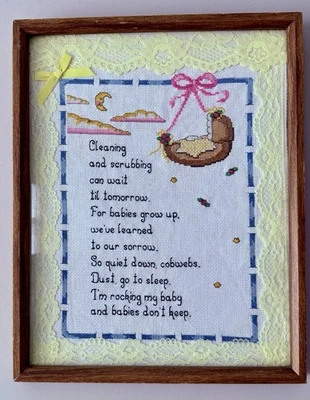 Cleaning
and scrubbing
can wait
til tomorrow.
For babies grow up,
we've learned
to our sorrow.
So quiet down, cobwebs.
Dust, go to sleep.
I'm rocking my baby
and babies don't keep.